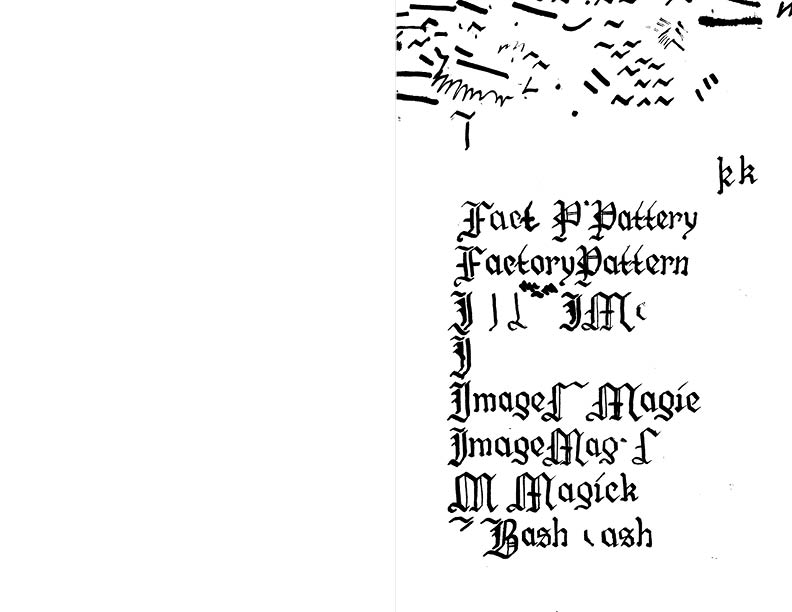 kk
Fact P Pattery
FactoryPattern
I I M
I
Image Magie
ImageMag
M Magick
Bash ash